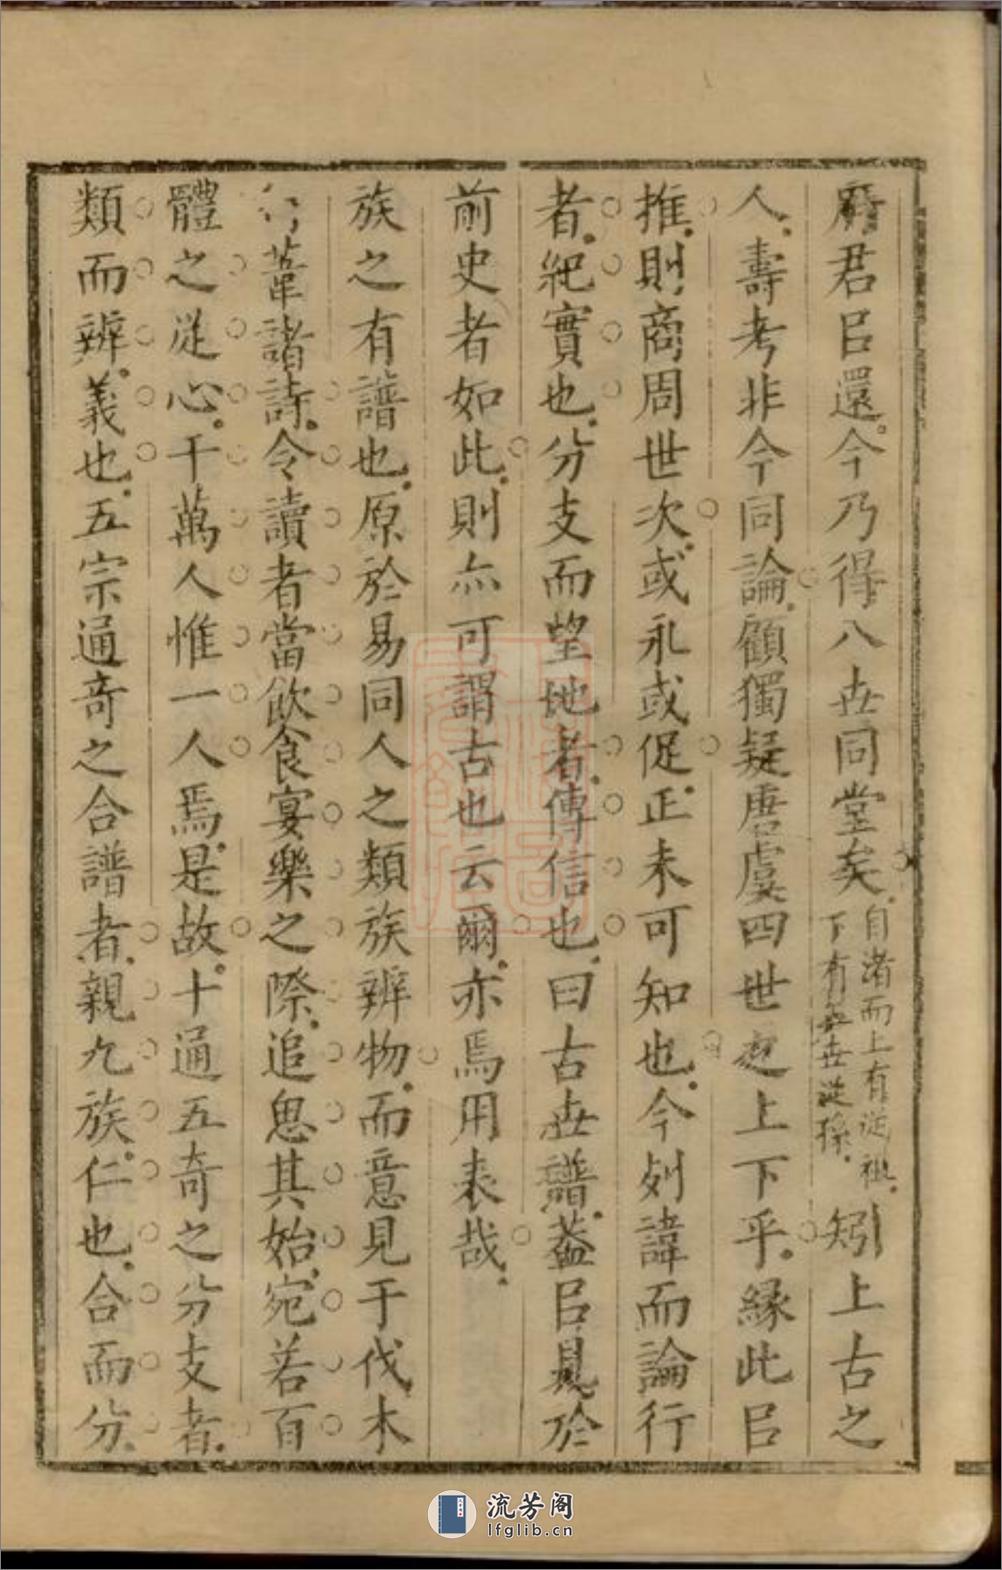 府君㠯還今乃得八世同堂矣自渚而上有從祖下有五世從孫矧上古之
人壽考非今同論顧獨疑唐虞四世之上下乎緣此㠯
推則商周世次或永或促正未可知也今列諱而論行
者紀實也分支而望地者傳信也曰古世譜蓋㠯具於
前史者如此則亦可謂古也云爾亦焉用表哉
族之有譜也原於易同人之類族辨物而意見于伐木
行葦諸詩令讀者當飲食宴樂之際追思其始宛若百
體之從心千萬人惟一人焉是故十通五奇之分支者
類而辨義也五宗通奇之合譜者親九族仁也合而分
流芳阁
lfglib.cn